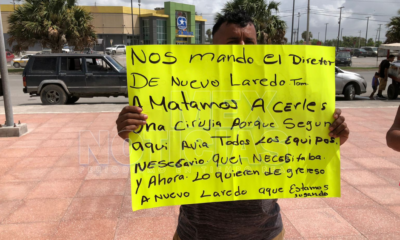 Nos mando el Director
De Nuevo Laredo Tam
A Matamos A Cerle s
una Cirujia Porque Segun
aqui Avia Todos Los Equipos
NESESario. Quel NECESitaba.
y Ahora. Lo quieren De greseo
A Nuevo Laredo aque Estamos
Jugando